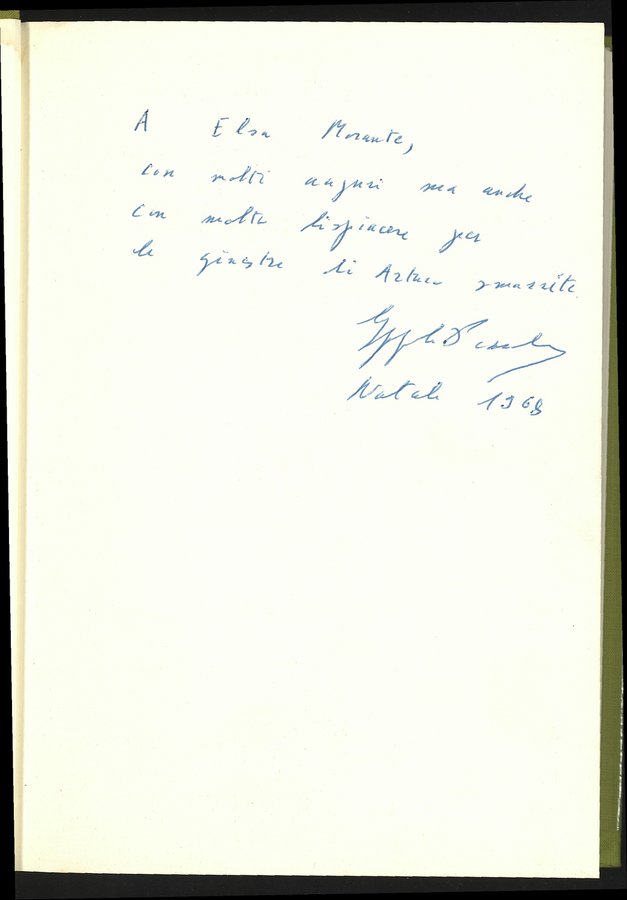 A Elsa Morante,
con molti auguri ma anche
con molto dispiacere per
le ginestre di Arturo smarrite.
Natale 1968